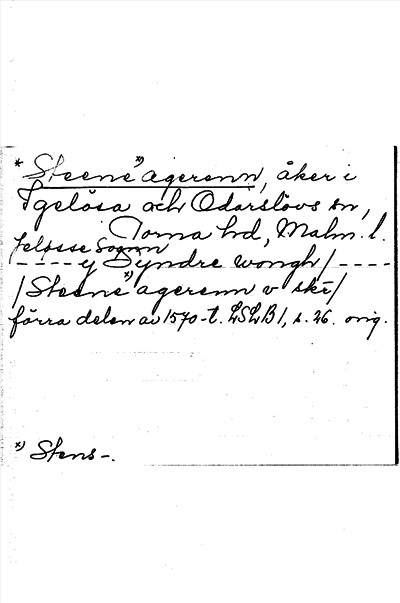 * Steene *) agerenn, åker i
Igelösa och Odarslövs sn,
Torna hd, Malm. l.
Jelösse Sognn
---- y Syndre wongh / ----
/ Steene *) agerenn v skr /
förra delen av 1570-t. LSLB 1, s. 26. orig.
*) Stens-.